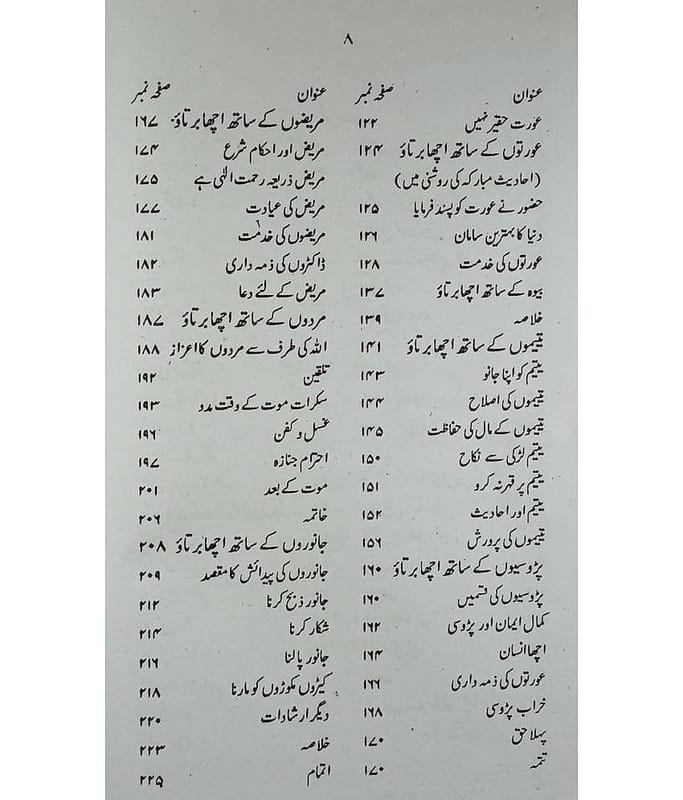 ۸
عنوان صفحہ نمبر
عورت حقیر نہیں ۱۲۲
عورتوں کے ساتھ اچھا برتاؤ ۱۲۴
(احادیث مبارکہ کی روشنی میں)
حضور نے عورت کو پسند فرمایا ۱۲۵
دنیا کا بہترین سامان ۱۲۶
عورتوں کی خدمت ۱۲۸
بیوہ کے ساتھ اچھا برتاؤ ۱۳۷
خلاصہ ۱۳۹
یتیموں کے ساتھ اچھا برتاؤ ۱۴۱
یتیم کو اپنا جانو ۱۴۳
یتیموں کی اصلاح ۱۴۴
یتیموں کے مال کی حفاظت ۱۴۵
یتیم لڑکی سے نکاح ۱۵۰
یتیم پر قہر نہ کرو ۱۵۱
یتیم اور احادیث ۱۵۲
یتیموں کی پرورش ۱۵۶
پڑوسیوں کے ساتھ اچھا برتاؤ ۱۶۰
پڑوسیوں کی قسمیں ۱۶۰
کمال ایمان اور پڑوسی ۱۶۲
اچھا انسان ۱۶۴
عورتوں کی ذمہ داری ۱۶۶
خراب پڑوسی ۱۶۸
پہلا حق ۱۷۰
تتمہ ۱۷۰
عنوان صفحہ نمبر
مریضوں کے ساتھ اچھا برتاؤ ۱۶۷
مریض اور احکام شرع ۱۷۴
مریض ذریعہ رحمت الٰہی ہے ۱۷۵
مریض کی عیادت ۱۷۷
مریضوں کی خدمت ۱۸۱
ڈاکٹروں کی ذمہ داری ۱۸۲
مریض کے لئے دعا ۱۸۳
مردوں کے ساتھ اچھا برتاؤ ۱۸۷
اللہ کی طرف سے مردوں کا اعزاز ۱۸۸
تلقین ۱۹۲
سکرات موت کے وقت مدد ۱۹۳
غسل و کفن ۱۹۶
احترام جنازہ ۱۹۷
موت کے بعد ۲۰۱
خاتمہ ۲۰۶
جانوروں کے ساتھ اچھا برتاؤ ۲۰۸
جانوروں کی پیدائش کا مقصد ۲۰۹
جانور ذبح کرنا ۲۱۲
شکار کرنا ۲۱۴
جانور پالنا ۲۱۶
کیڑوں مکوڑوں کو مارنا ۲۱۸
دیگر ارشادات ۲۲۰
خلاصہ ۲۲۳
اتمام ۲۲۵